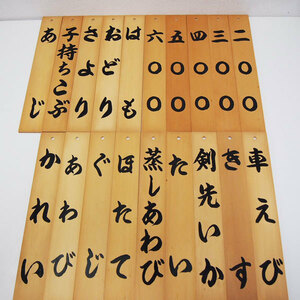 二〇〇
三〇〇
四〇〇
五〇〇
六〇〇
はも
おどり
さより
子持ちこぶ
あじ
車えび
きす
剣先いか
たい
蒸しあわび
ほたて
ぐじ
あわび
かれい